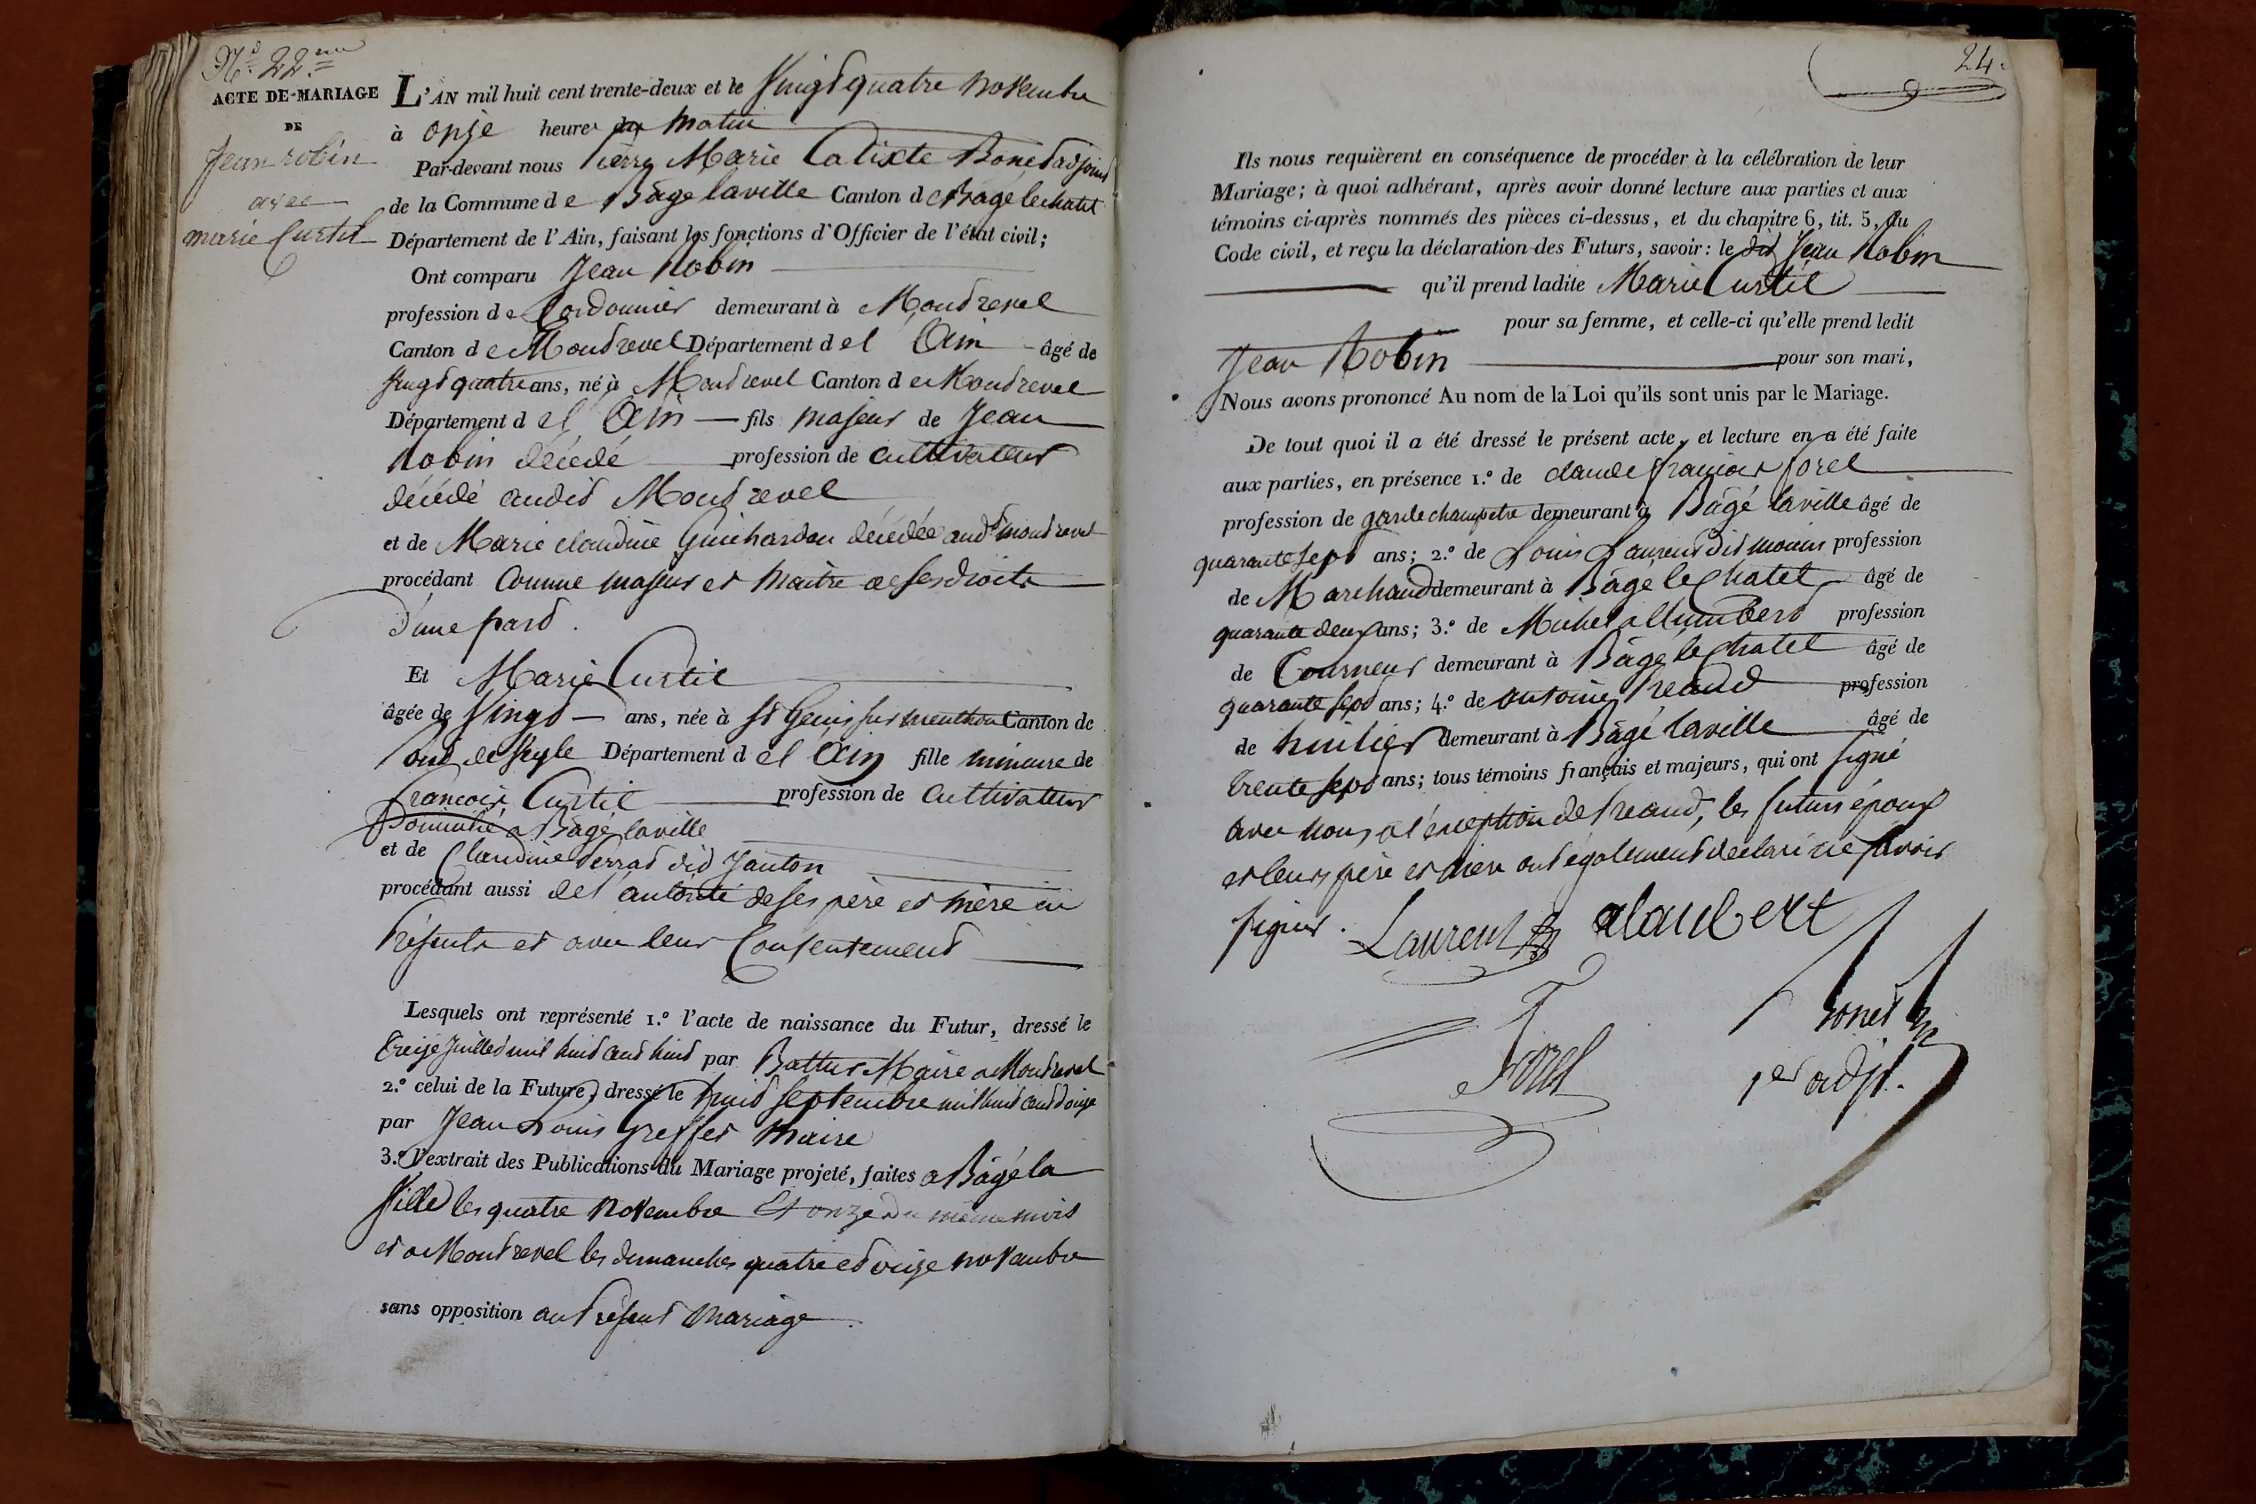 N.º 22.me
ACTE DE MARIAGE
DE
Jean robin
avec
marie Curtil
L'AN mil huit cent trente-deux et le Vingt quatre novembre
à onze heures du matin
Par-devant nous Pierre Marie Calixte Bonet adjoint
de la Commune de Bâgé laville Canton de Bagé le chatel
Département de l'Ain, faisant les fonctions d'Officier de l'état civil;
Ont comparu Jean Robin
profession de Cordonnier demeurant à Montrevel
Canton de Montrevel Département de l'Ain âgé de
Vingt quatre ans, né à Montrevel Canton de Montrevel
Département de l'Ain fils majeur de Jean
Robin décédé profession de cultivateur
décédé audit Montrevel
et de Marie claudine Guichardon décédée aud.t montrevel
procédant Comme majeur et maitre de ses droits
d'une part.
Et Marie Curtil
âgée de Vingt ans, née à St Genis sur menthon Canton de
Pont de Veyle Département de l'Ain fille mineure de
François Curtil profession de cultivateur
Domicilié a Bâgé laville
et de Claudine Perrat dit Janton
procédant aussi de l'autorité de ses père et mère ici
Présents et avec leur Consentement
Lesquels ont représenté 1.º l'acte de naissance du Futur, dressé le
treize Juillet mil huit cent huit par Battur Maire a Montrevel
2.º celui de la Future, dressé le huit septembre mil huit cent douze
par Jean Louis Greffet Maire
3.º l'extrait des Publications du Mariage projeté, faites a Bâgé la
Ville les quatre novembre Et onze du même mois
et a Montrevel les dimanches quatre et onze novembre
sans opposition au Présent mariage.
24.
Ils nous requièrent en conséquence de procéder à la célébration de leur
Mariage; à quoi adhérant, après avoir donné lecture aux parties et aux
témoins ci-après nommés des pièces ci-dessus, et du chapitre 6, tit. 5, du
Code civil, et reçu la déclaration des Futurs, savoir: le dit Jean Robin
qu'il prend ladite Marie Curtil
pour sa femme, et celle-ci qu'elle prend ledit
Jean Robin pour son mari,
Nous avons prononcé Au nom de la Loi qu'ils sont unis par le Mariage.
De tout quoi il a été dressé le présent acte, et lecture en a été faite
aux parties, en présence 1.º de claude françois forel
profession de garde champetre demeurant à Bâgé laville âgé de
quarante sept ans; 2.º de Louis Laurent dit monin profession
de Marchand demeurant à Bâgé le Chatel âgé de
quarante deux ans; 3.º de Michel allumbert profession
de Tourneur demeurant à Bâgé le Chatel âgé de
quarante sept ans; 4.º de antoine Preaud profession
de huilier demeurant à Bâgé laville âgé de
trente sept ans; tous témoins français et majeurs, qui ont signé
avec nous, a l'exception de Preaud, les futurs époux
et leurs père et mère ont également declaré ne savoir
signer.
Laurent alaubert
Forel
Bonet
1er adjt.